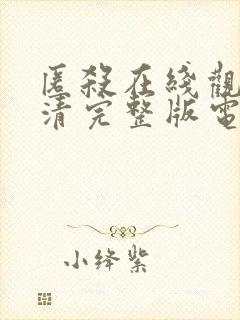 匿殺在线觀
清完整版電
小绛紫